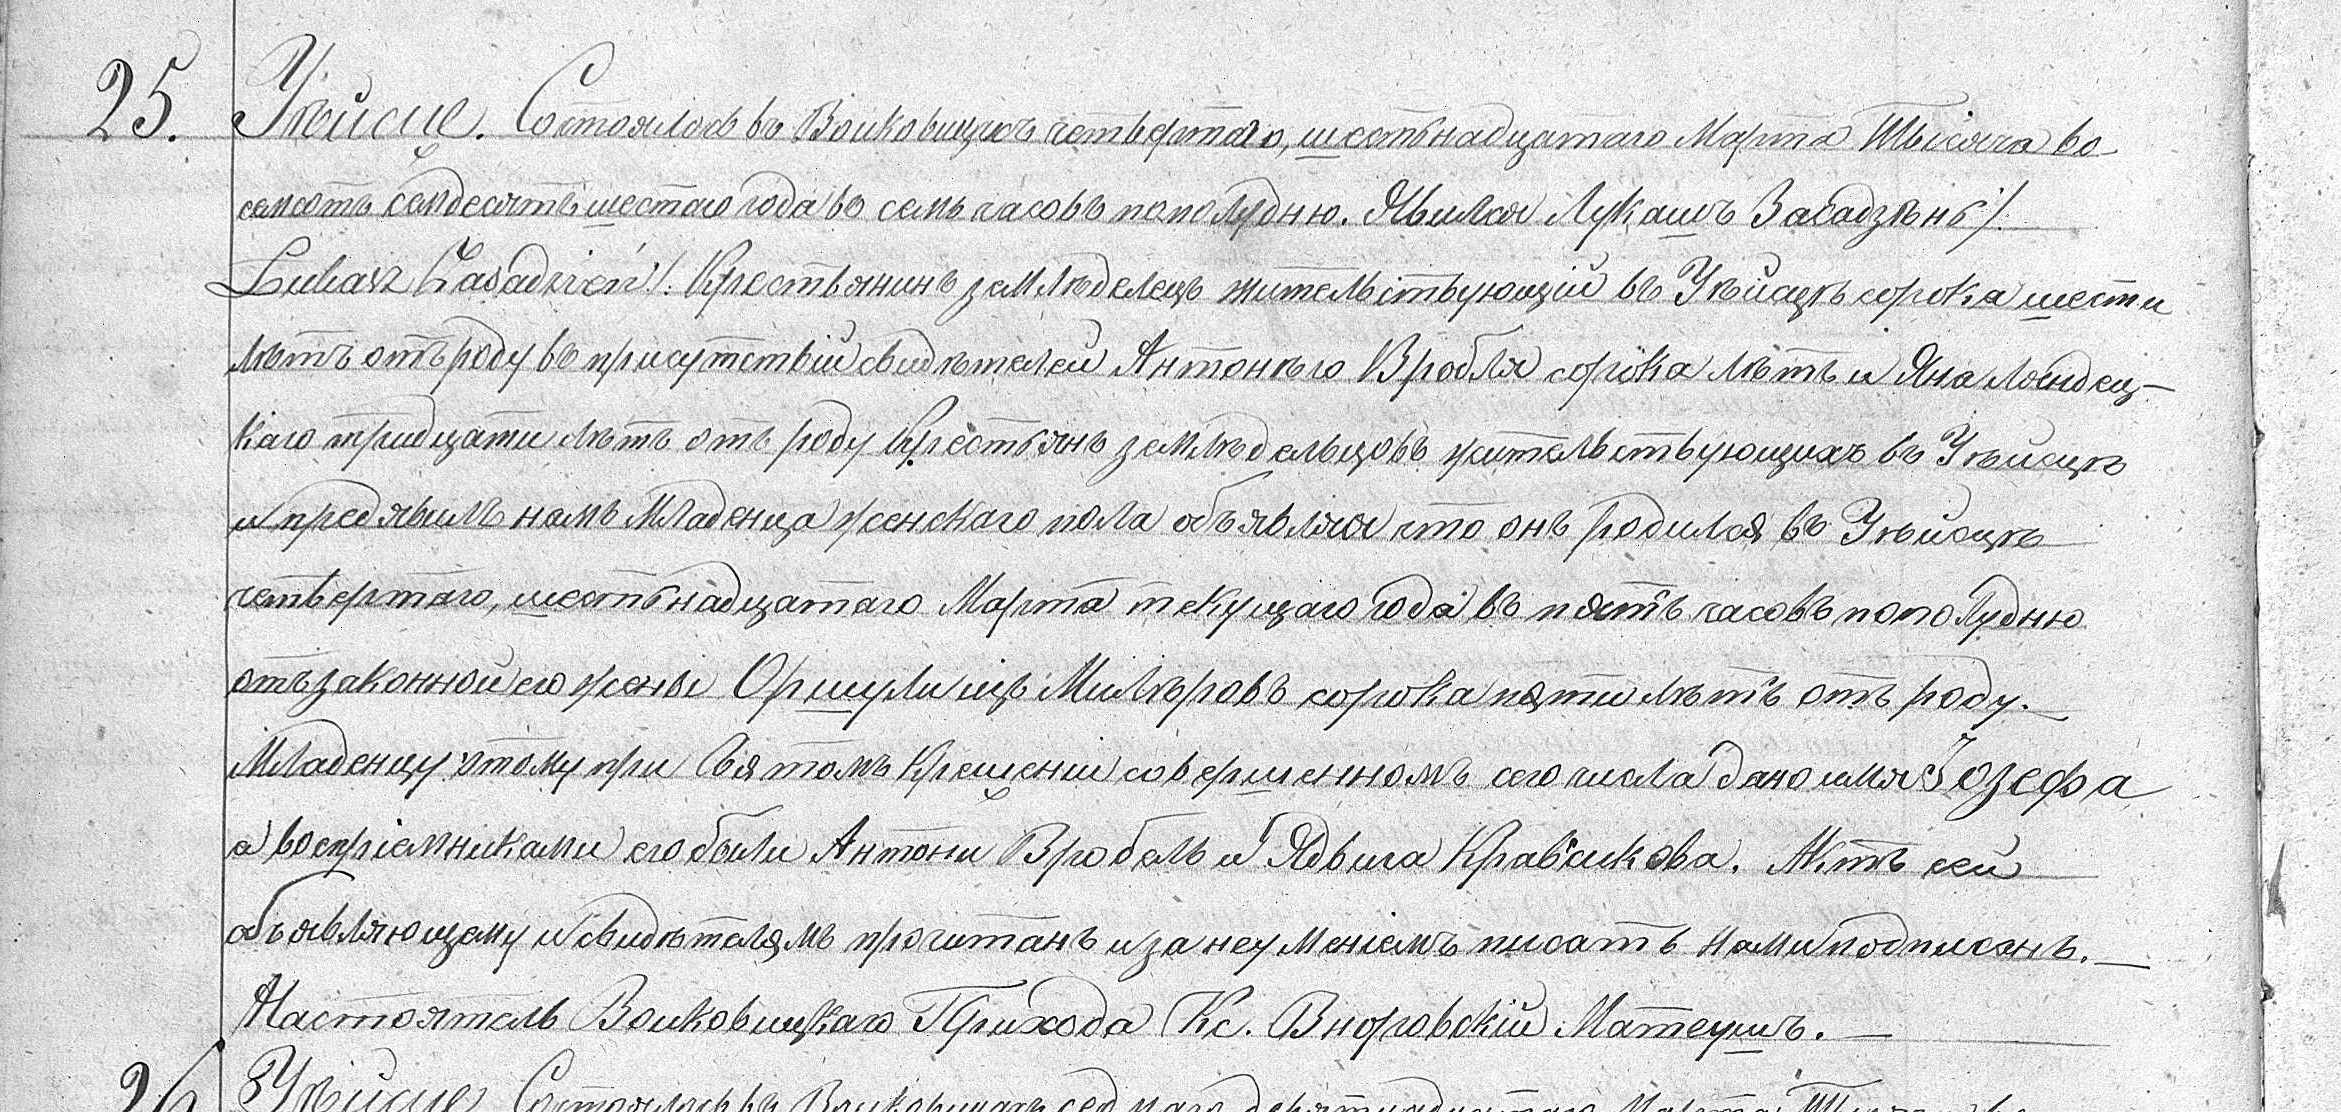 25. Уѣйсце. Состоялось въ Войковицахъ четвертаго, шестьнадцатаго Марта Тысяча во
семсотъ семдесятъ шестаго года въ семь часовъ пополудню. Явился Лукашъ Засадзѣнь /:
Łukasz Zasadzień /: Крестьянинъ землѣделецъ жительствующій въ Уѣйсцѣ сорока шести
лѣтъ отъ роду въ присутствій свидѣтелей Антонѣго Вробля сорока лѣтъ и Яна Лондец-
каго тридцати лѣтъ отъ роду Крестьянъ землѣдельцовъ жительствующихъ въ Уѣйсцѣ
и предявилъ намъ Младенца женскаго пола объявляя что онъ родился въ Уѣйсцѣ
четвертаго, шестьнадцатаго Марта текущаго года въ пять часовъ пополудню
отъ законной его жены Оршули изъ Милѣровъ сорока пяти лѣтъ отъ роду.
Младенцу этому при Святомъ Крещеніи совершенномъ сего числа дано имя Іозефа
а воспріемниками его были Антони Вробель и Ядвига Кравчикова. Актъ сей
объявляющему и свидѣтелямъ прочитанъ и за неуменіемъ писать нами подписанъ.
Настоятель Войковицкаго Прихода Кс. Вноровскій Матеушъ.
26. Уѣйсце. Состоялось въ Войковицахъ седмаго, девятнадцатаго Марта Тысяча во